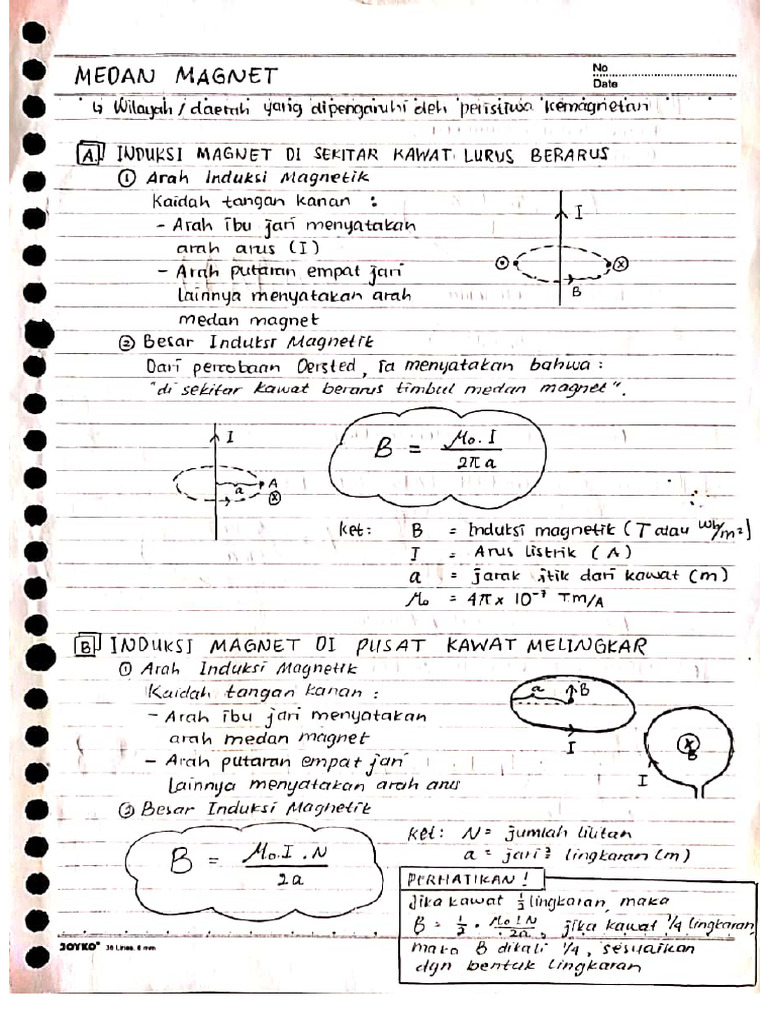 No
Date
MEDAN MAGNET
↳ Wilayah / daerah yang dipengaruhi oleh peristiwa kemagnetan
A. INDUKSI MAGNET DI SEKITAR KAWAT LURUS BERARUS
① Arah Induksi Magnetik
Kaidah tangan kanan :
- Arah ibu jari menyatakan
arah arus (I)
- Arah putaran empat jari
lainnya menyatakan arah
medan magnet
I
B
② Besar Induksi Magnetik
Dari percobaan Oersted, Ia menyatakan bahwa :
"di sekitar kawat berarus timbul medan magnet".
I
A
a
B = μ₀.I / 2πa
ket: B = Induksi magnetik (T atau Wb/m²)
I = Arus listrik (A)
a = jarak titik dari kawat (m)
μ₀ = 4π x 10⁻⁷ Tm/A
B INDUKSI MAGNET DI PUSAT KAWAT MELINGKAR
① Arah Induksi Magnetik
Kaidah tangan kanan :
- Arah ibu jari menyatakan
arah medan magnet
- Arah putaran empat jari
lainnya menyatakan arah arus
a
B
I
B
I
② Besar Induksi Magnetik
B = μ₀.I.N / 2a
ket: N = jumlah lilitan
a = jari² lingkaran (m)
PERHATIKAN !
Jika kawat ½ lingkaran, maka
B = ½ . μ₀ I N / 2a, jika kawat ¼ lingkaran,
maka B dikali ¼, sesuaikan
dgn bentuk lingkaran
JOYKO® 36 Lines, 8 mm